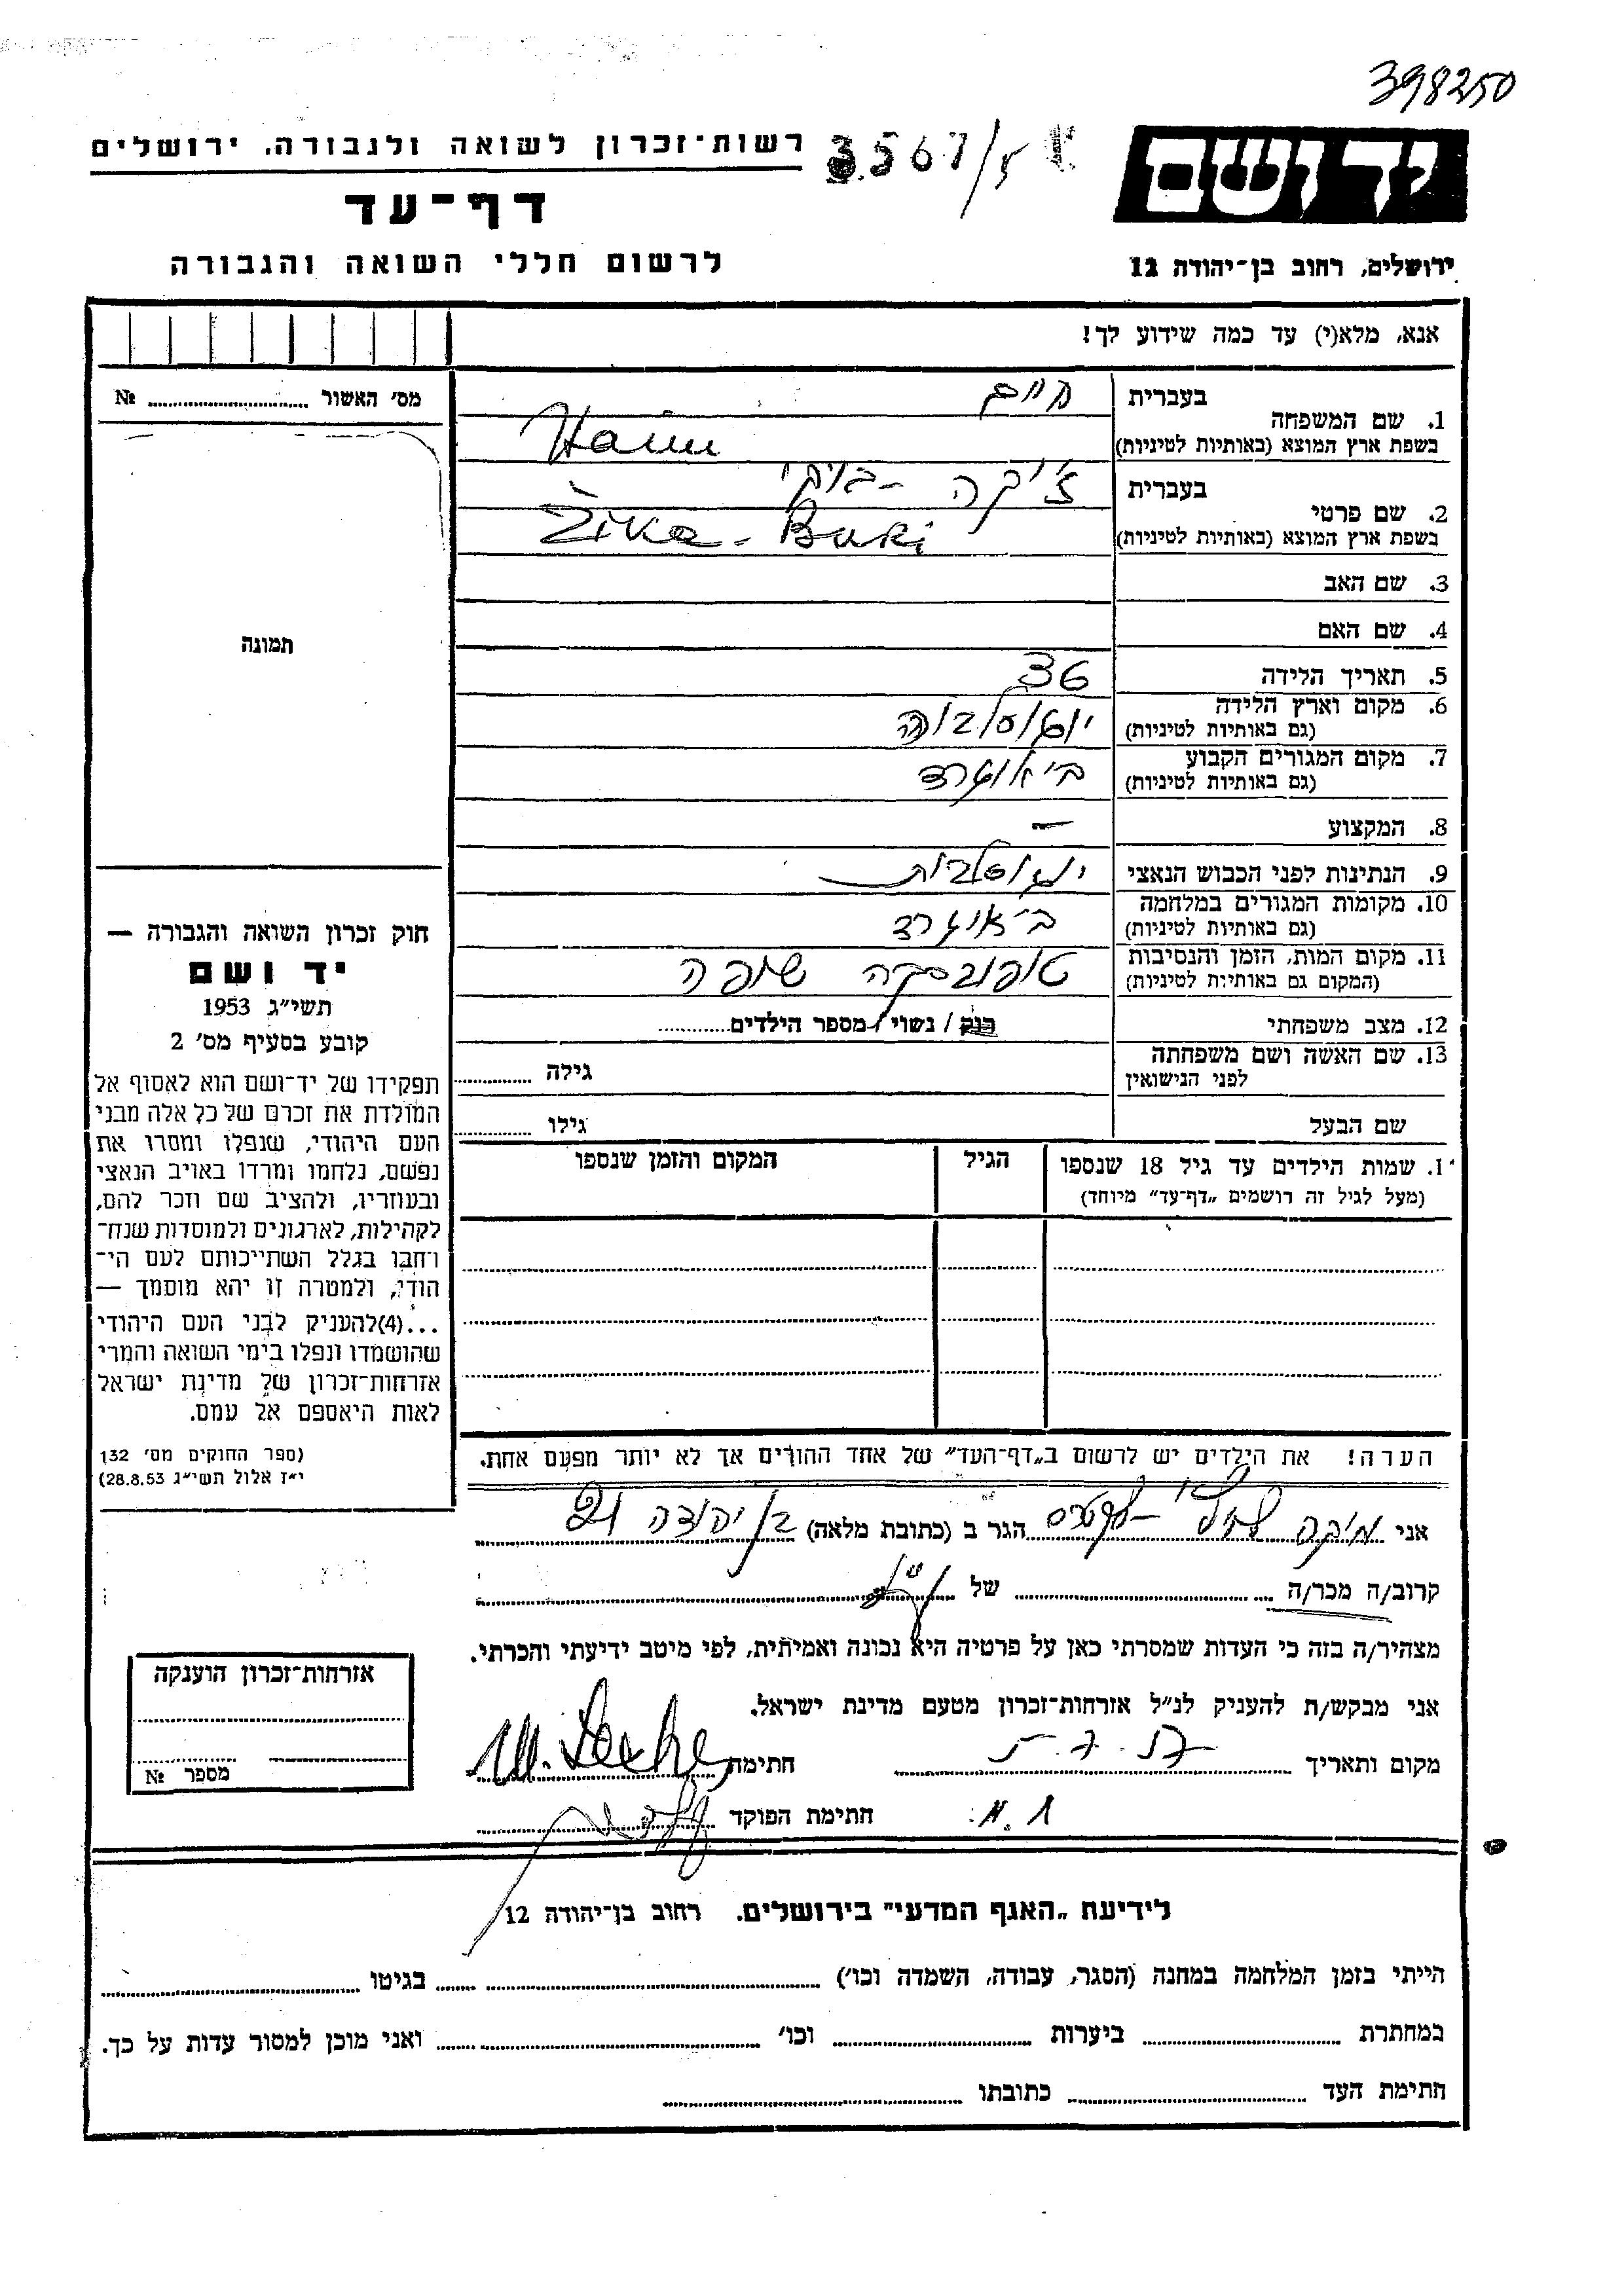 398250
רשות־זכרון לשואה ולגבורה, ירושלים
3567/5
יד ושם
דף־עד
לרשום חללי השואה והגבורה
ירושלים, רחוב בן־יהודה 12
אנא, מלא(י) עד כמה שידוע לך!
מס׳ האשור № ..........
תמונה
בעברית חיים
1. שם המשפחה
בשפת ארץ המוצא (באותיות לטיניות) Haim
בעברית ז׳יקה - בוקי
2. שם פרטי
בשפת ארץ המוצא (באותיות לטיניות) Žika - Buki
3. שם האב
4. שם האם
5. תאריך הלידה 36
6. מקום וארץ הלידה יוגוסלביה
(גם באותיות לטיניות)
7. מקום המגורים הקבוע ביאוגרד
(גם באותיות לטיניות)
8. המקצוע —
9. הנתינות לפני הכבוש הנאצי יוגוסלבית
10. מקומות המגורים במלחמה ביאוגרד
(גם באותיות לטיניות)
11. מקום המות, הזמן והנסיבות טופובסקה שופה
(המקום גם באותיות לטיניות)
12. מצב משפחתי רווק / נשוי / מספר הילדים..........
13. שם האשה ושם משפחתה גילה ..........
לפני הנישואין
שם הבעל גילו ..........
1. שמות הילדים עד גיל 18 שנספו הגיל המקום והזמן שנספו
(מעל לגיל זה רושמים „דף־עד״ מיוחד)
הערה! את הילדים יש לרשום ב„דף־העד״ של אחד ההורים אך לא יותר מפעם אחת.
חוק זכרון השואה והגבורה —
יד ושם
תשי״ג 1953
קובע בסעיף מס׳ 2
תפקידו של יד־ושם הוא לאסוף אל
המולדת את זכרם של כל אלה מבני
העם היהודי, שנפלו ומסרו את
נפשם, נלחמו ומרדו באויב הנאצי
ובעוזריו, ולהציב שם וזכר להם,
לקהילות, לארגונים ולמוסדות שנח־
רחבו בגלל השתייכותם לעם הי־
הודי, ולמטרה זו יהא מוסמך —
...(4)להעניק לבני העם היהודי
שהושמדו ונפלו בימי השואה והמרי
אזרחות־זכרון של מדינת ישראל
לאות היאספם אל עמם.
(ספר החוקים מס׳ 132
י״ז אלול תשי״ג 28.8.53)
אני הגר ב (כתובת מלאה) בן יהודה
קרוב/ה מכר/ה .......... של ..........
מצהיר/ה בזה כי העדות שמסרתי כאן על פרטיה היא נכונה ואמיתית, לפי מיטב ידיעתי והכרתי.
אני מבקש/ת להעניק לנ״ל אזרחות־זכרון מטעם מדינת ישראל.
מקום ותאריך חתימה
חתימת הפוקד
אזרחות־זכרון הוענקה
מספר №
לידיעת „האגף המדעי״ בירושלים. רחוב בן־יהודה 12
הייתי בזמן המלחמה במחנה (הסגר, עבודה, השמדה וכו׳) .......... בגיטו ..........
במחתרת .......... ביערות .......... וכו׳ .......... ואני מוכן למסור עדות על כך.
חתימת העד .......... כתובתו ..........